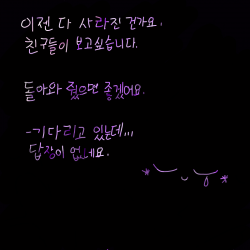 이젠 다 사라진 건가요.
친구들이 보고싶습니다.
돌아와 줬으면 좋겠어요.
-기다리고 있는데...
답장이 없네요.